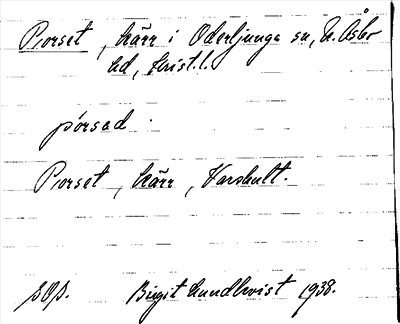 Porset, kärr i Oderljunga sn, N. Åsbo
hd, Krist. l.
pórsad.
Porset, kärr, Varshult.
sOp. Birgit Lundkvist 1938.